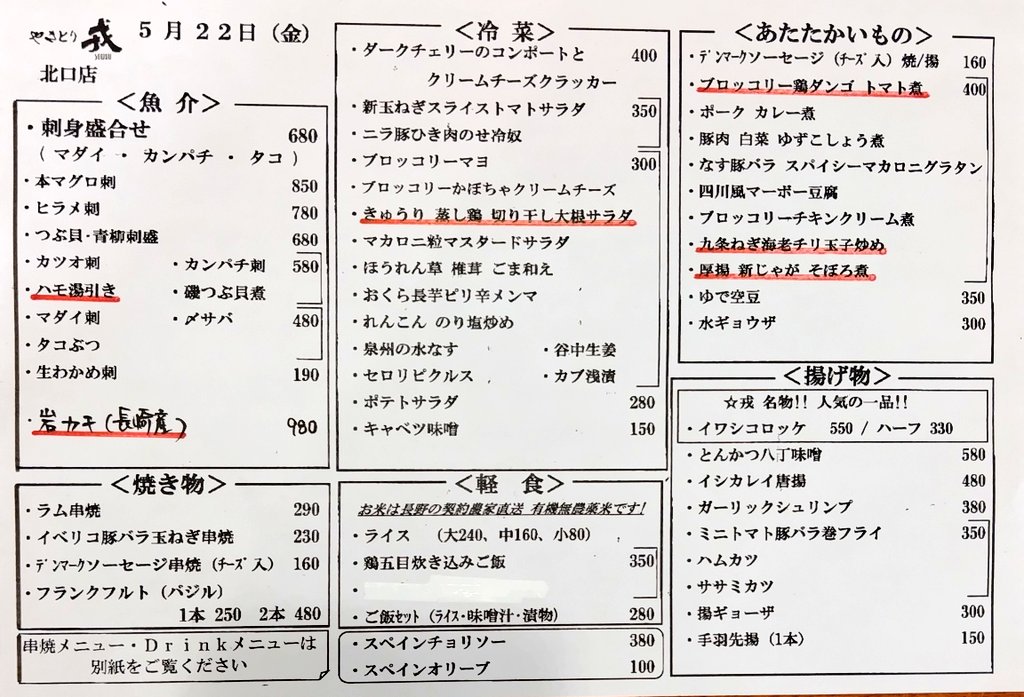 やきとり 戎 5月22日（金）
北口店
＜魚 介＞
・刺身盛合せ 680
（マダイ ・ カンパチ ・ タコ）
・本マグロ刺 850
・ヒラメ刺 780
・つぶ貝・青柳刺盛 680
・カツオ刺 ・カンパチ刺 580
・ハモ湯引き ・磯つぶ貝煮
・マダイ刺 ・〆サバ 480
・タコぶつ
・生わかめ刺 190
・岩カキ(長崎産) 980
＜焼き物＞
・ラム串焼 290
・イベリコ豚バラ玉ねぎ串焼 230
・ﾃﾞﾝﾏｰｸソーセージ串焼（ﾁｰｽﾞ入） 160
・フランクフルト（バジル）
1本 250 2本 480
串焼メニュー・Ｄｒｉｎｋメニューは
別紙をご覧ください
＜冷 菜＞
・ダークチェリーのコンポートと 400
クリームチーズクラッカー
・新玉ねぎスライストマトサラダ 350
・ニラ豚ひき肉のせ冷奴
・ブロッコリーマヨ 300
・ブロッコリーかぼちゃクリームチーズ
・きゅうり 蒸し鶏 切り干し大根サラダ
・マカロニ粒マスタードサラダ
・ほうれん草 椎茸 ごま和え
・おくら長芋ピリ辛メンマ
・れんこん のり塩炒め
・泉州の水なす ・谷中生姜
・セロリピクルス ・カブ浅漬
・ポテトサラダ 280
・キャベツ味噌 150
＜軽 食＞
お米は長野の契約農家直送 有機無農薬米です!
・ライス （大240、中160、小80）
・鶏五目炊き込みご飯 350
・
・ご飯セット（ﾗｲｽ・味噌汁・漬物） 280
・スペインチョリソー 380
・スペインオリーブ 100
＜あたたかいもの＞
・ﾃﾞﾝﾏｰｸソーセージ（ﾁｰｽﾞ入）焼/揚 160
・ブロッコリー鶏ダンゴ トマト煮 400
・ポーク カレー煮
・豚肉 白菜 ゆずこしょう煮
・なす豚バラ スパイシーマカロニグラタン
・四川風マーボー豆腐
・ブロッコリーチキンクリーム煮
・九条ねぎ海老チリ玉子炒め
・厚揚 新じゃが そぼろ煮
・ゆで空豆 350
・水ギョウザ 300
＜揚げ物＞
☆戎 名物!! 人気の一品!!
・イワシコロッケ 550 / ハーフ 330
・とんかつ八丁味噌 580
・イシカレイ唐揚 480
・ガーリックシュリンプ 380
・ミニトマト豚バラ巻フライ 350
・ハムカツ
・ササミカツ
・揚ギョーザ 300
・手羽先揚（1本） 150